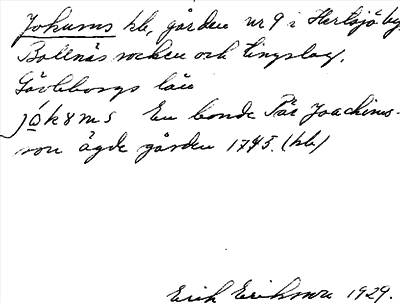 Jokums hb, gården nr 9 i Hertsjö by,
Bollnäs socken och tingslag,
Gävleborgs län
jókums En bonde Pär Joachims-
son ägde gården 1743. (hb)
Erik Eriksson 1929.